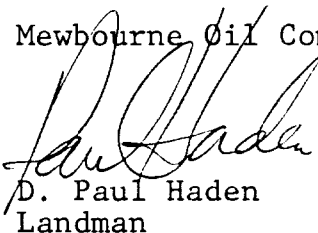 Mewbourne Oil Com
Paul Haden
D. Paul Haden
Landman